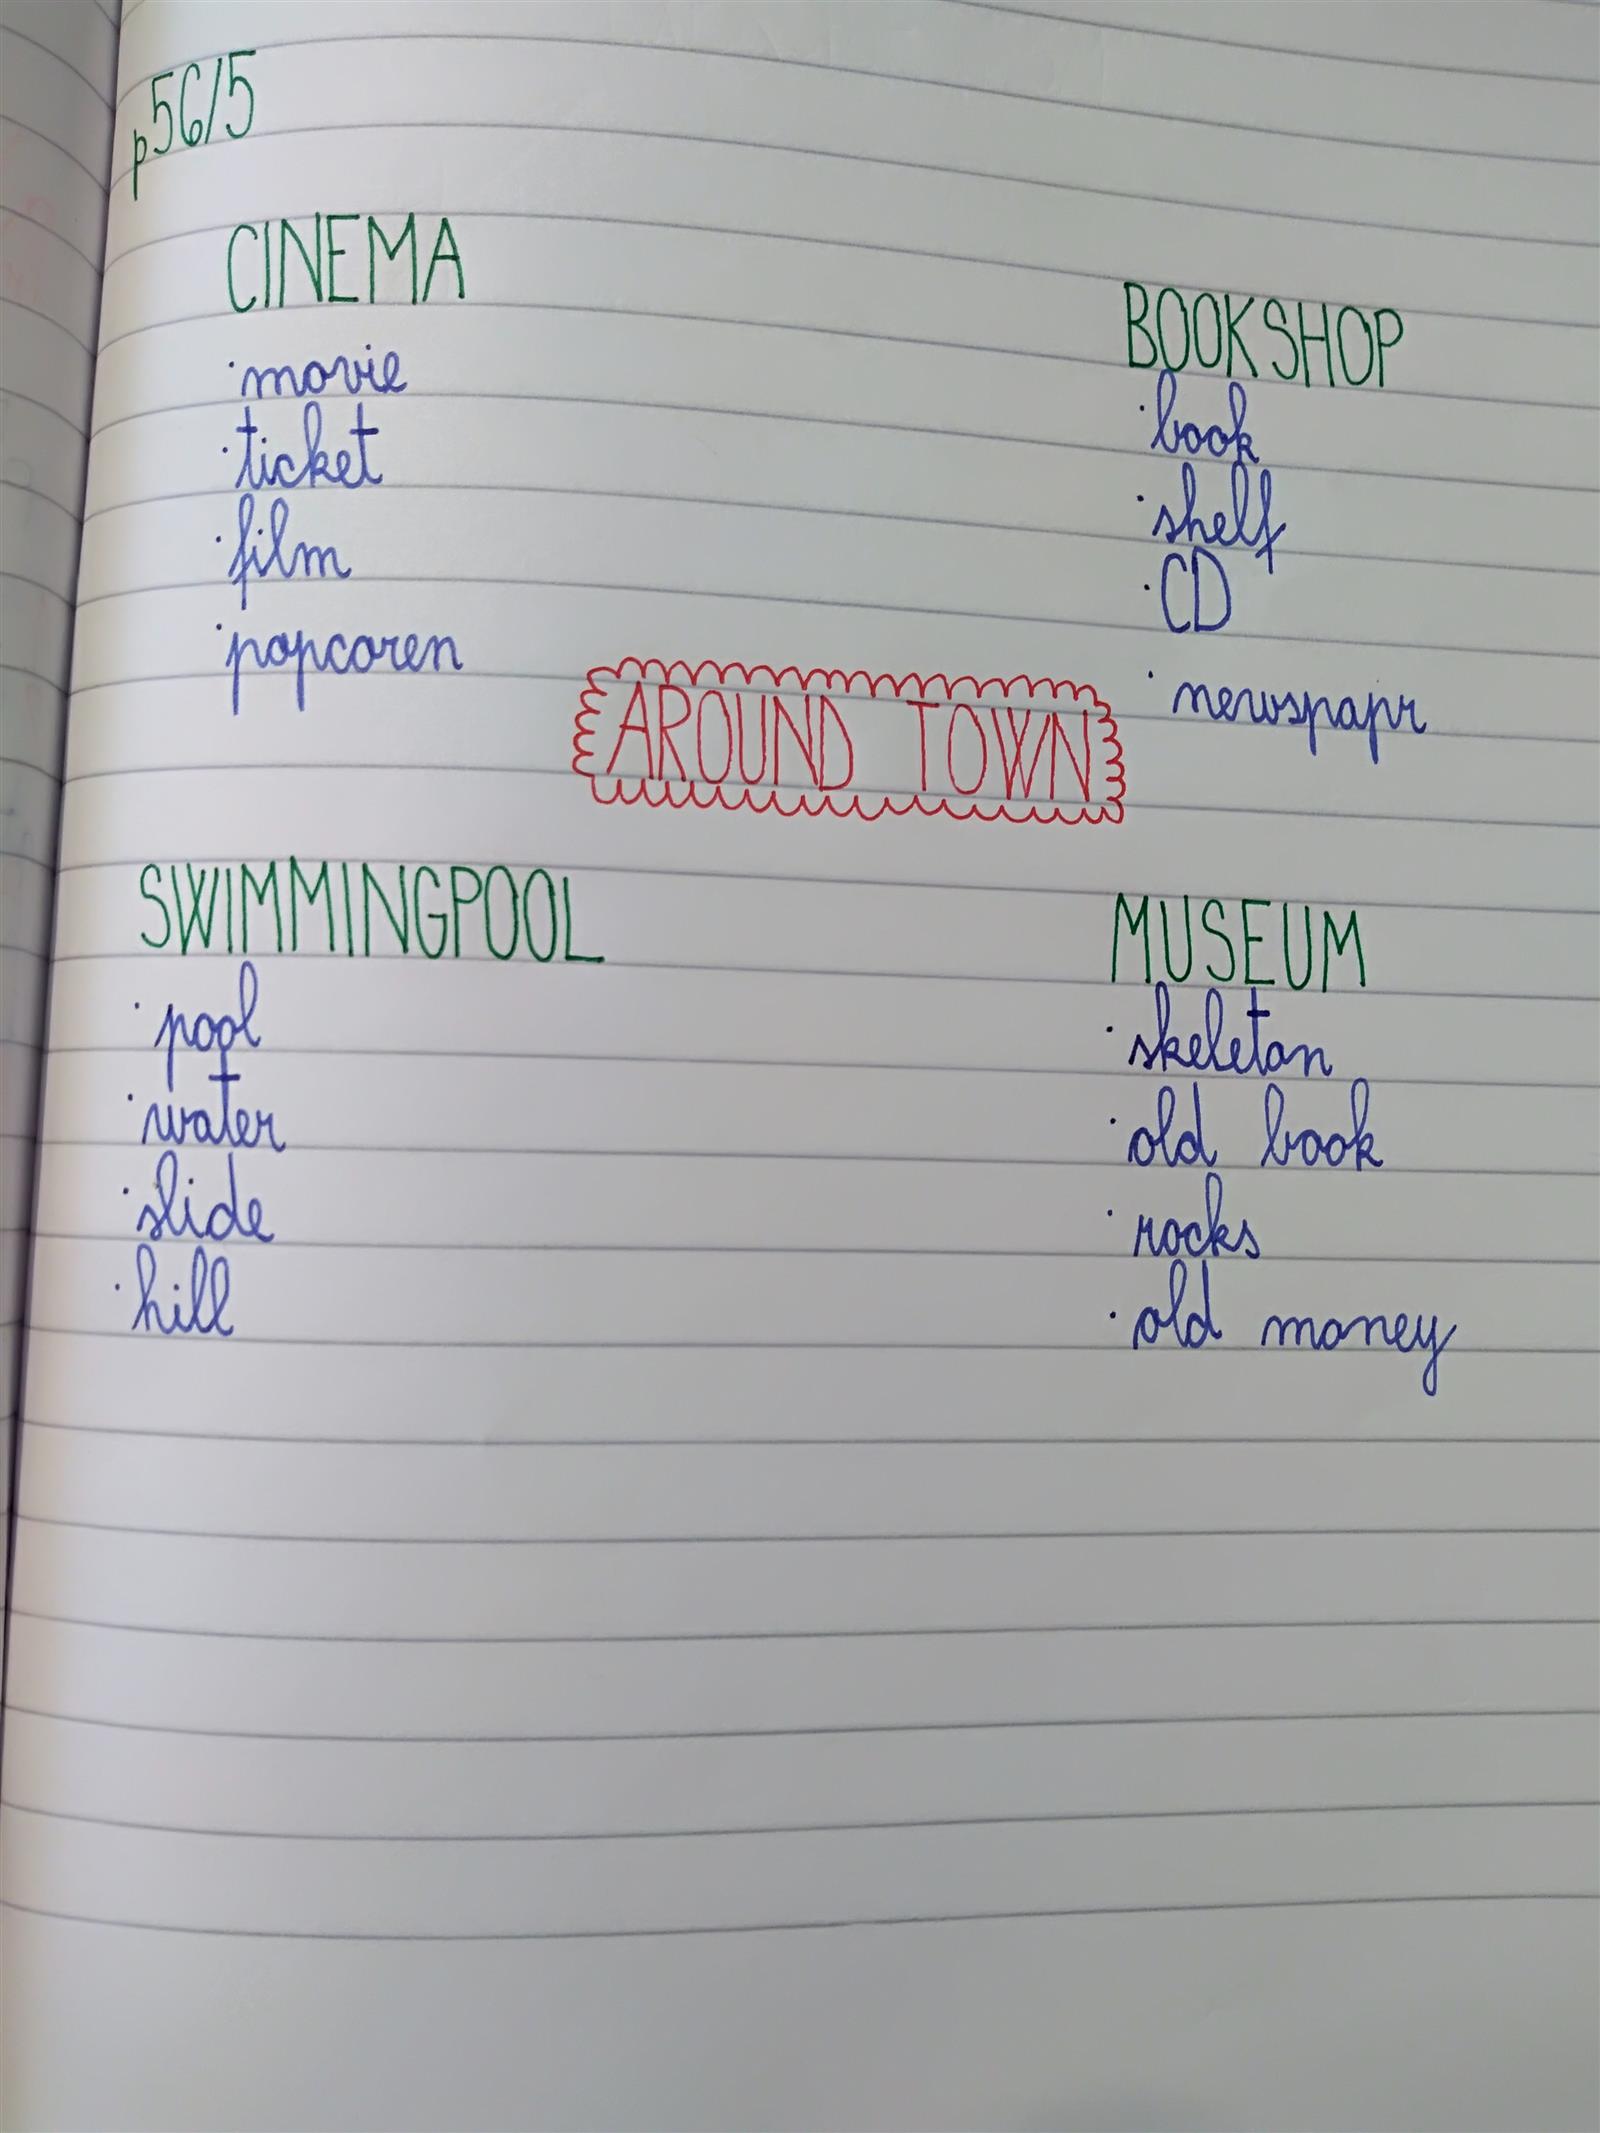 p56/5
CINEMA
·movie
·ticket
·film
·popcoren
BOOKSHOP
·book
·shelf
·CD
·newspapr
AROUND TOWN
SWIMMINGPOOL
·pool
·water
·slide
·hill
MUSEUM
·skeleton
·old book
·rocks
·old money